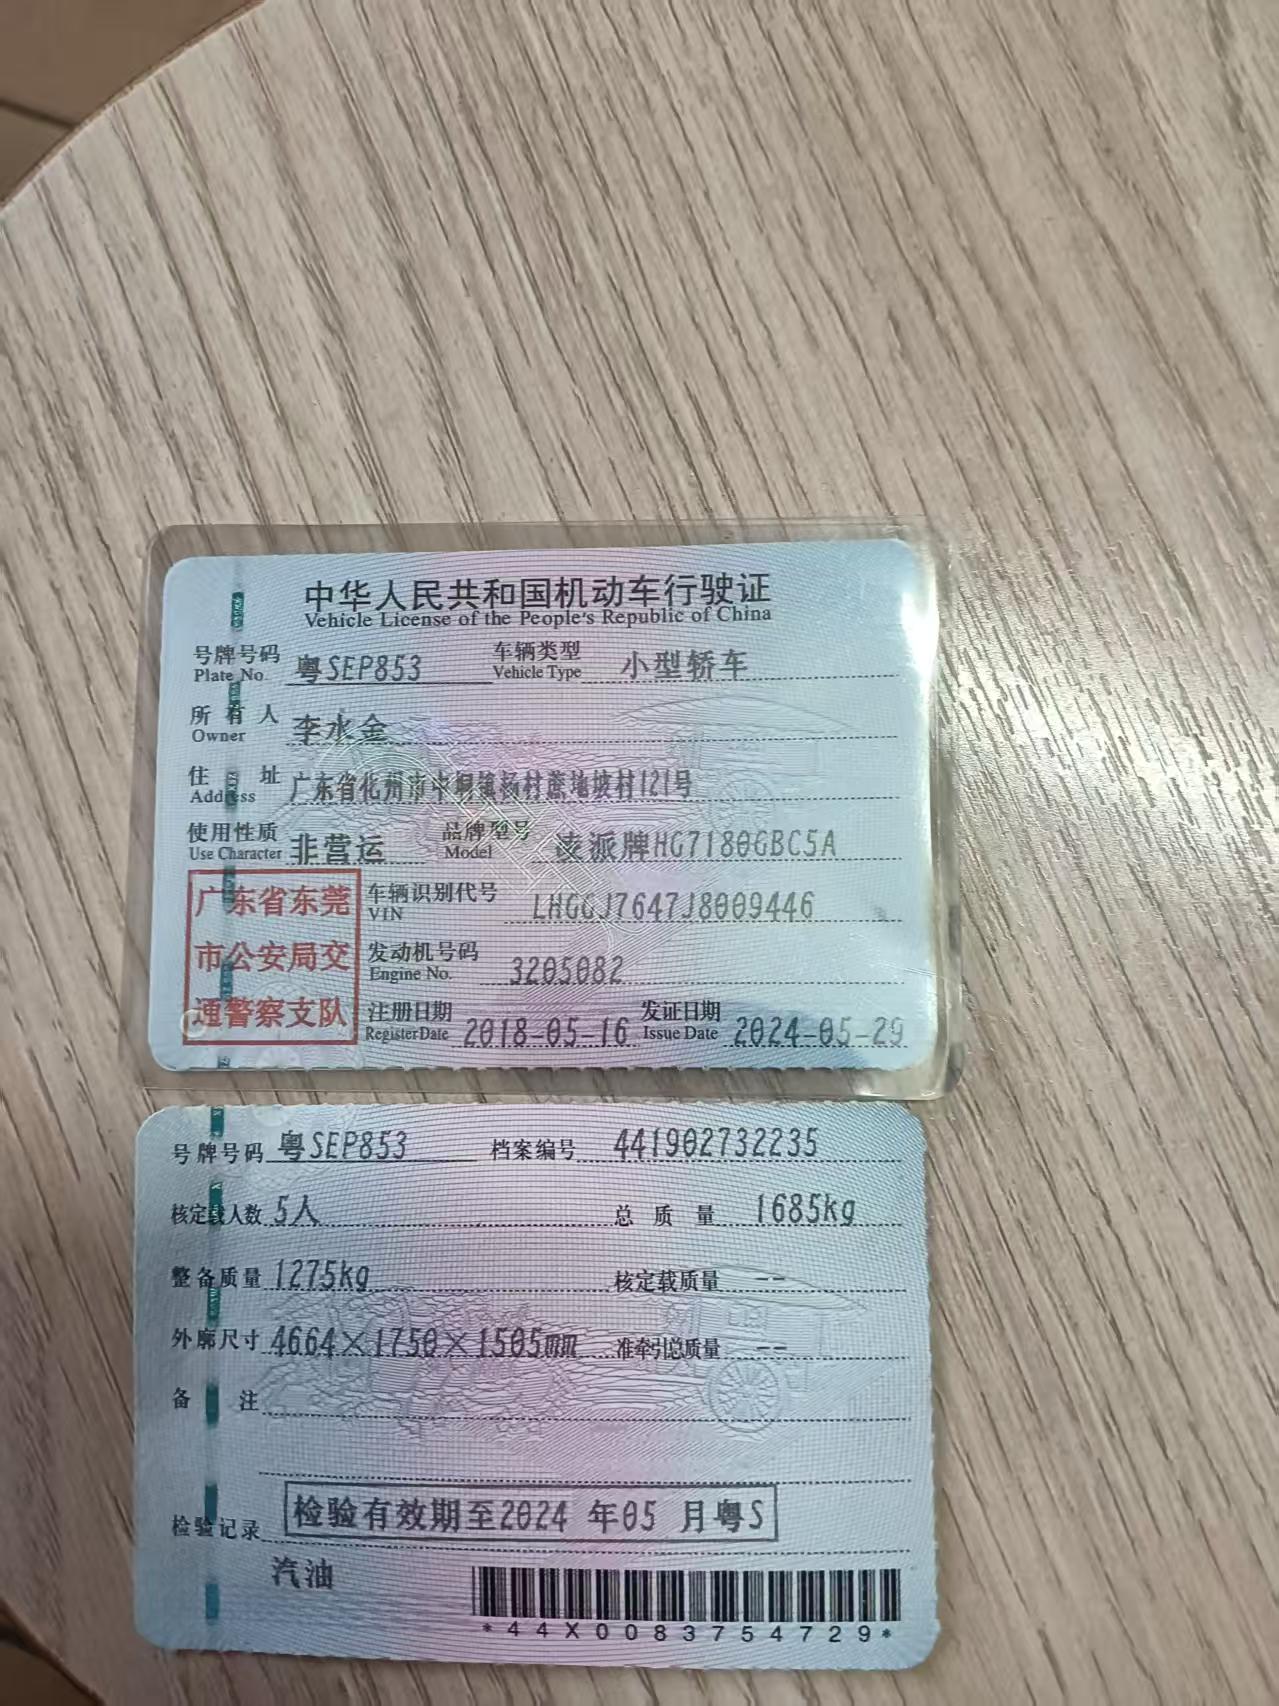 中华人民共和国机动车行驶证
Vehicle License of the People's Republic of China
号牌号码 粤SEP853 车辆类型 小型轿车
Plate No. Vehicle Type
所有人 李水金
Owner
住址 广东省化州市中垌镇杨村蔗地坡村121号
Address
使用性质 非营运 品牌型号 凌派牌HG7180GBC5A
Use Character Model
广东省东莞
市公安局交
通警察支队
车辆识别代号 LHGGJ7647J8009446
VIN
发动机号码 3205082
Engine No.
注册日期 2018-05-16 发证日期 2024-05-29
Register Date Issue Date
号牌号码 粤SEP853 档案编号 441902732235
核定载人数 5人 总质量 1685kg
整备质量 1275kg 核定载质量 --
外廓尺寸 4664×1750×1505mm 准牵引总质量 --
备注
检验记录 检验有效期至2024年05月粤S
汽油
*44X0083754729*